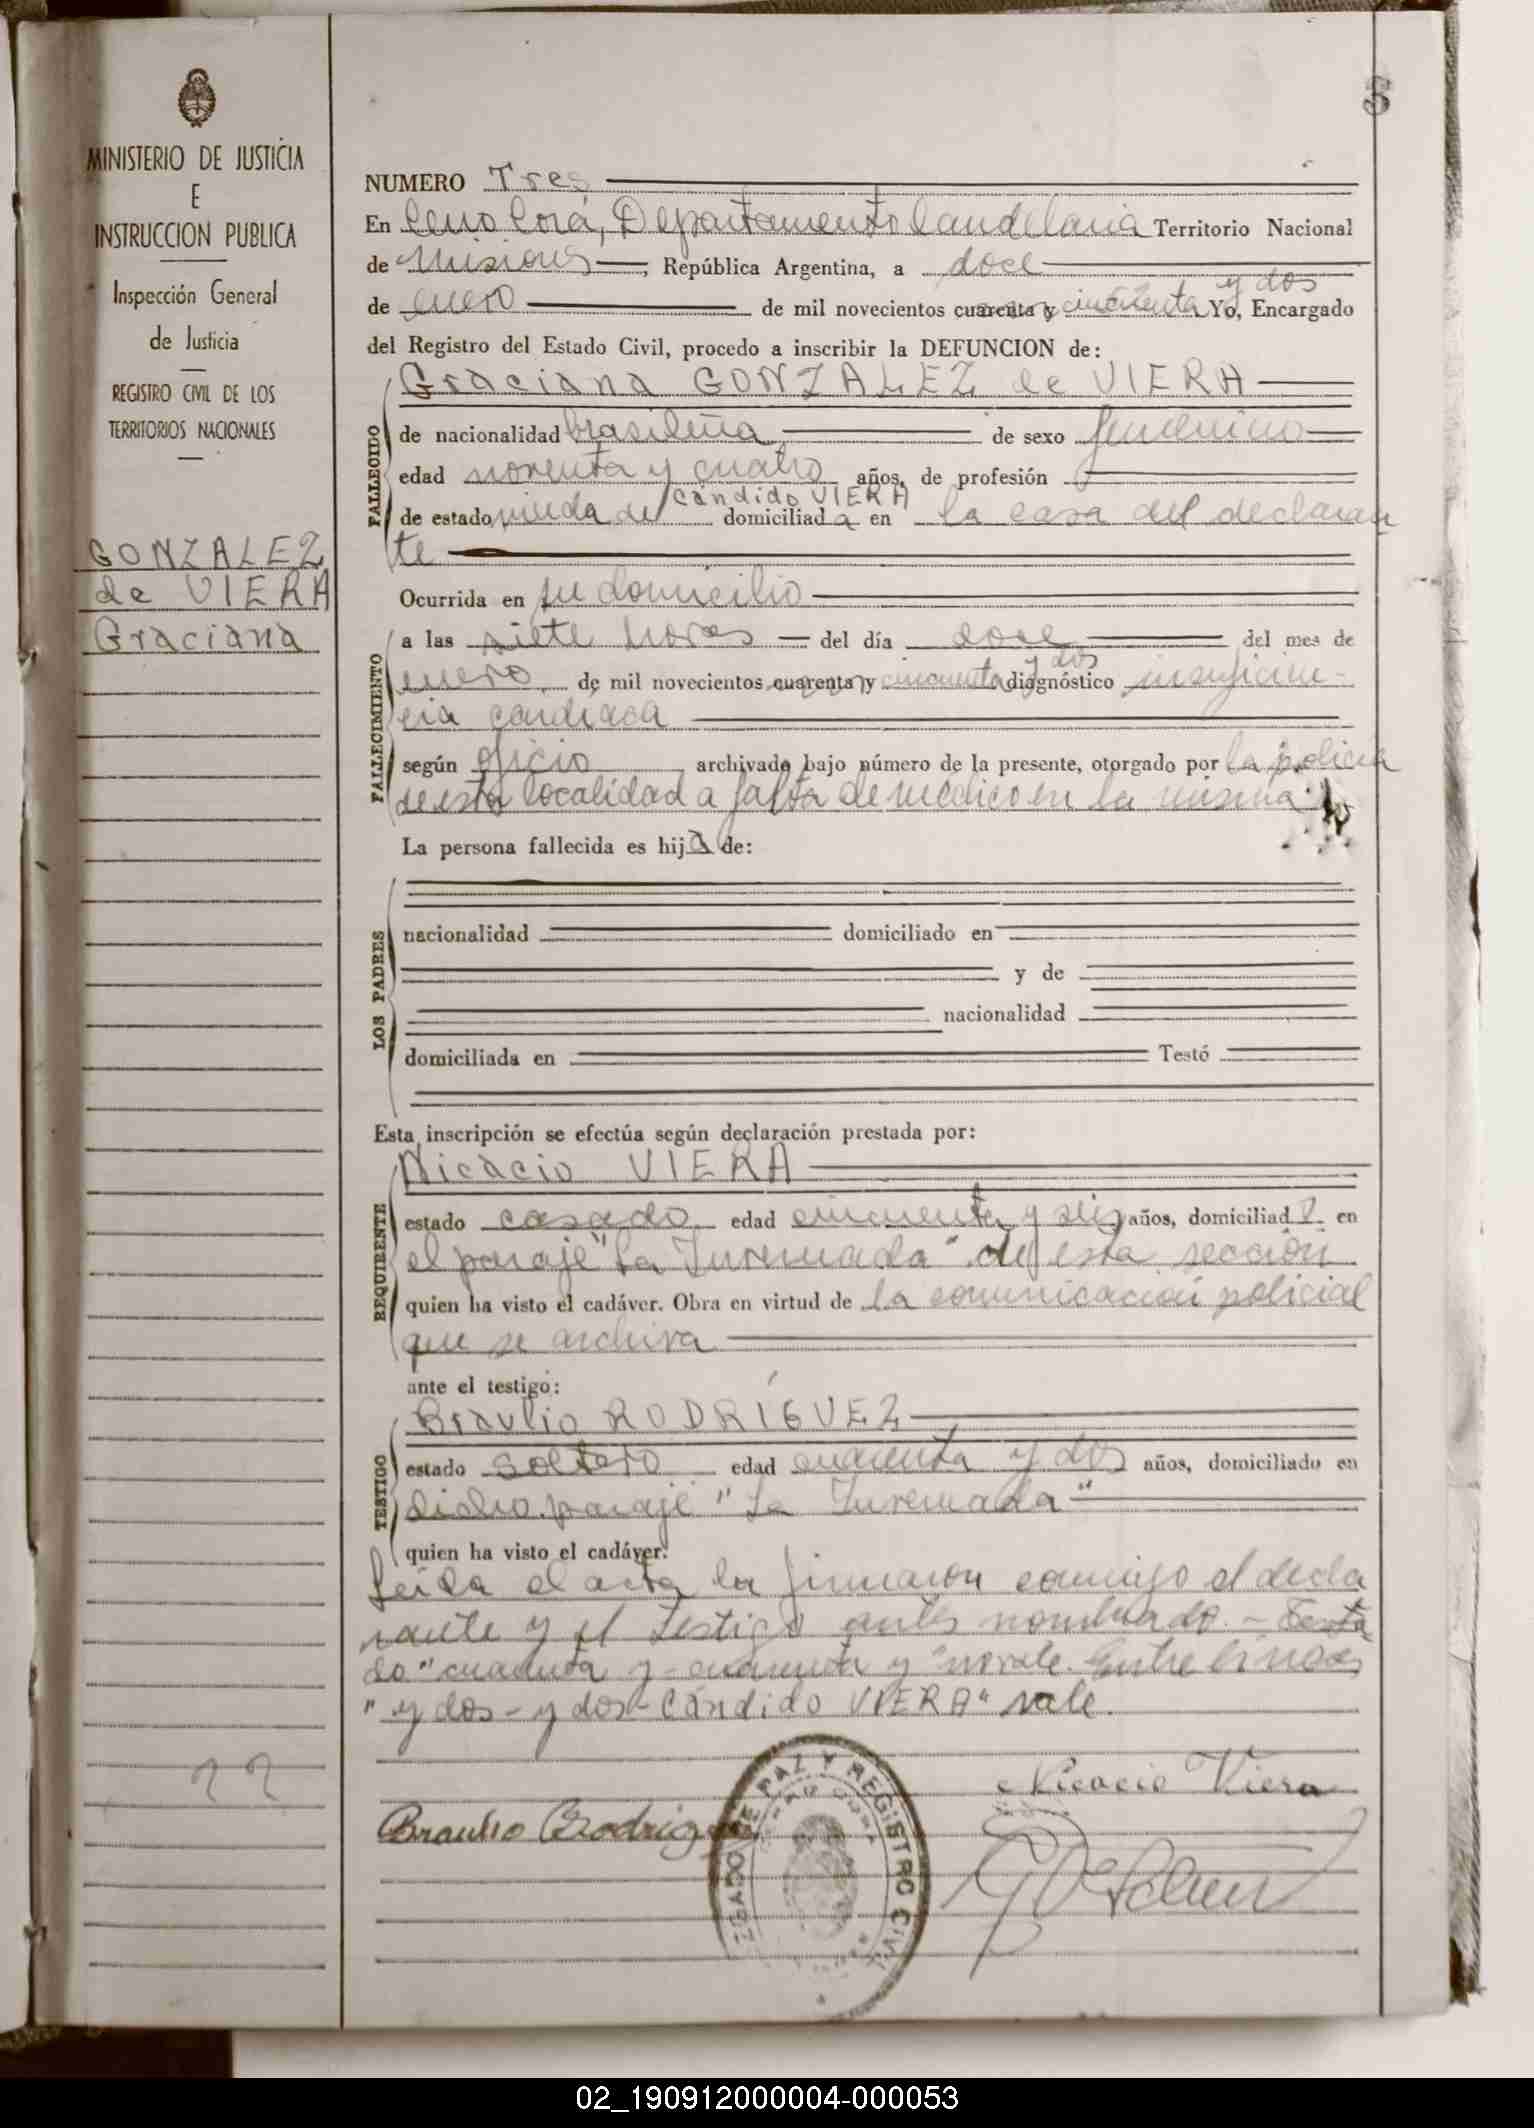 5
MINISTERIO DE JUSTICIA
E
INSTRUCCION PUBLICA
Inspección General
de Justicia
REGISTRO CIVIL DE LOS
TERRITORIOS NACIONALES
GONZALEZ
de VIERA
Graciana
22
NUMERO Tres
En Cerro Corá, Departamento Candelaria Territorio Nacional
de Misiones, República Argentina, a doce
y dos
de enero de mil novecientos cuarenta y cincuenta Yo, Encargado
del Registro del Estado Civil, procedo a inscribir la DEFUNCION de:
Graciana GONZALEZ de VIERA
FALLECIDO
de nacionalidad brasileña de sexo femenino
edad noventa y cuatro años, de profesión
Cándido VIERA
de estado viuda de domiciliada en la casa del declaran
te
Ocurrida en su domicilio
FALLECIMIENTO
a las siete horas del día doce del mes de
y dos
enero de mil novecientos cuarenta y cincuenta diagnóstico insuficien-
cia cardiaca
según oficio archivado bajo número de la presente, otorgado por la policía
de esta localidad a falta de médico en la misma.
La persona fallecida es hija de:
LOS PADRES
nacionalidad domiciliado en
y de
nacionalidad
domiciliada en Testó
Esta inscripción se efectúa según declaración prestada por:
REQUIRENTE
Nicacio VIERA
estado casado edad cincuenta y seis años, domiciliado en
el paraje "La Invernada" de esta sección
quien ha visto el cadáver. Obra en virtud de la comunicación policial
que se archiva
ante el testigo:
TESTIGO
Braulio RODRÍGUEZ
estado soltero edad cuarenta y dos años, domiciliado en
dicho paraje "La Invernada"
quien ha visto el cadáver.
Leída el acta la firmaron conmigo el decla
rante y el testigo antes nombrado.- Testa
do "cuarenta y - cuarenta y" no vale. Entre líneas
"y dos - y dos - Cándido VIERA" vale.
Nicacio Viera
Braulio Rodriguez
PAZ Y REGISTRO CIVIL
02_190912000004-000053